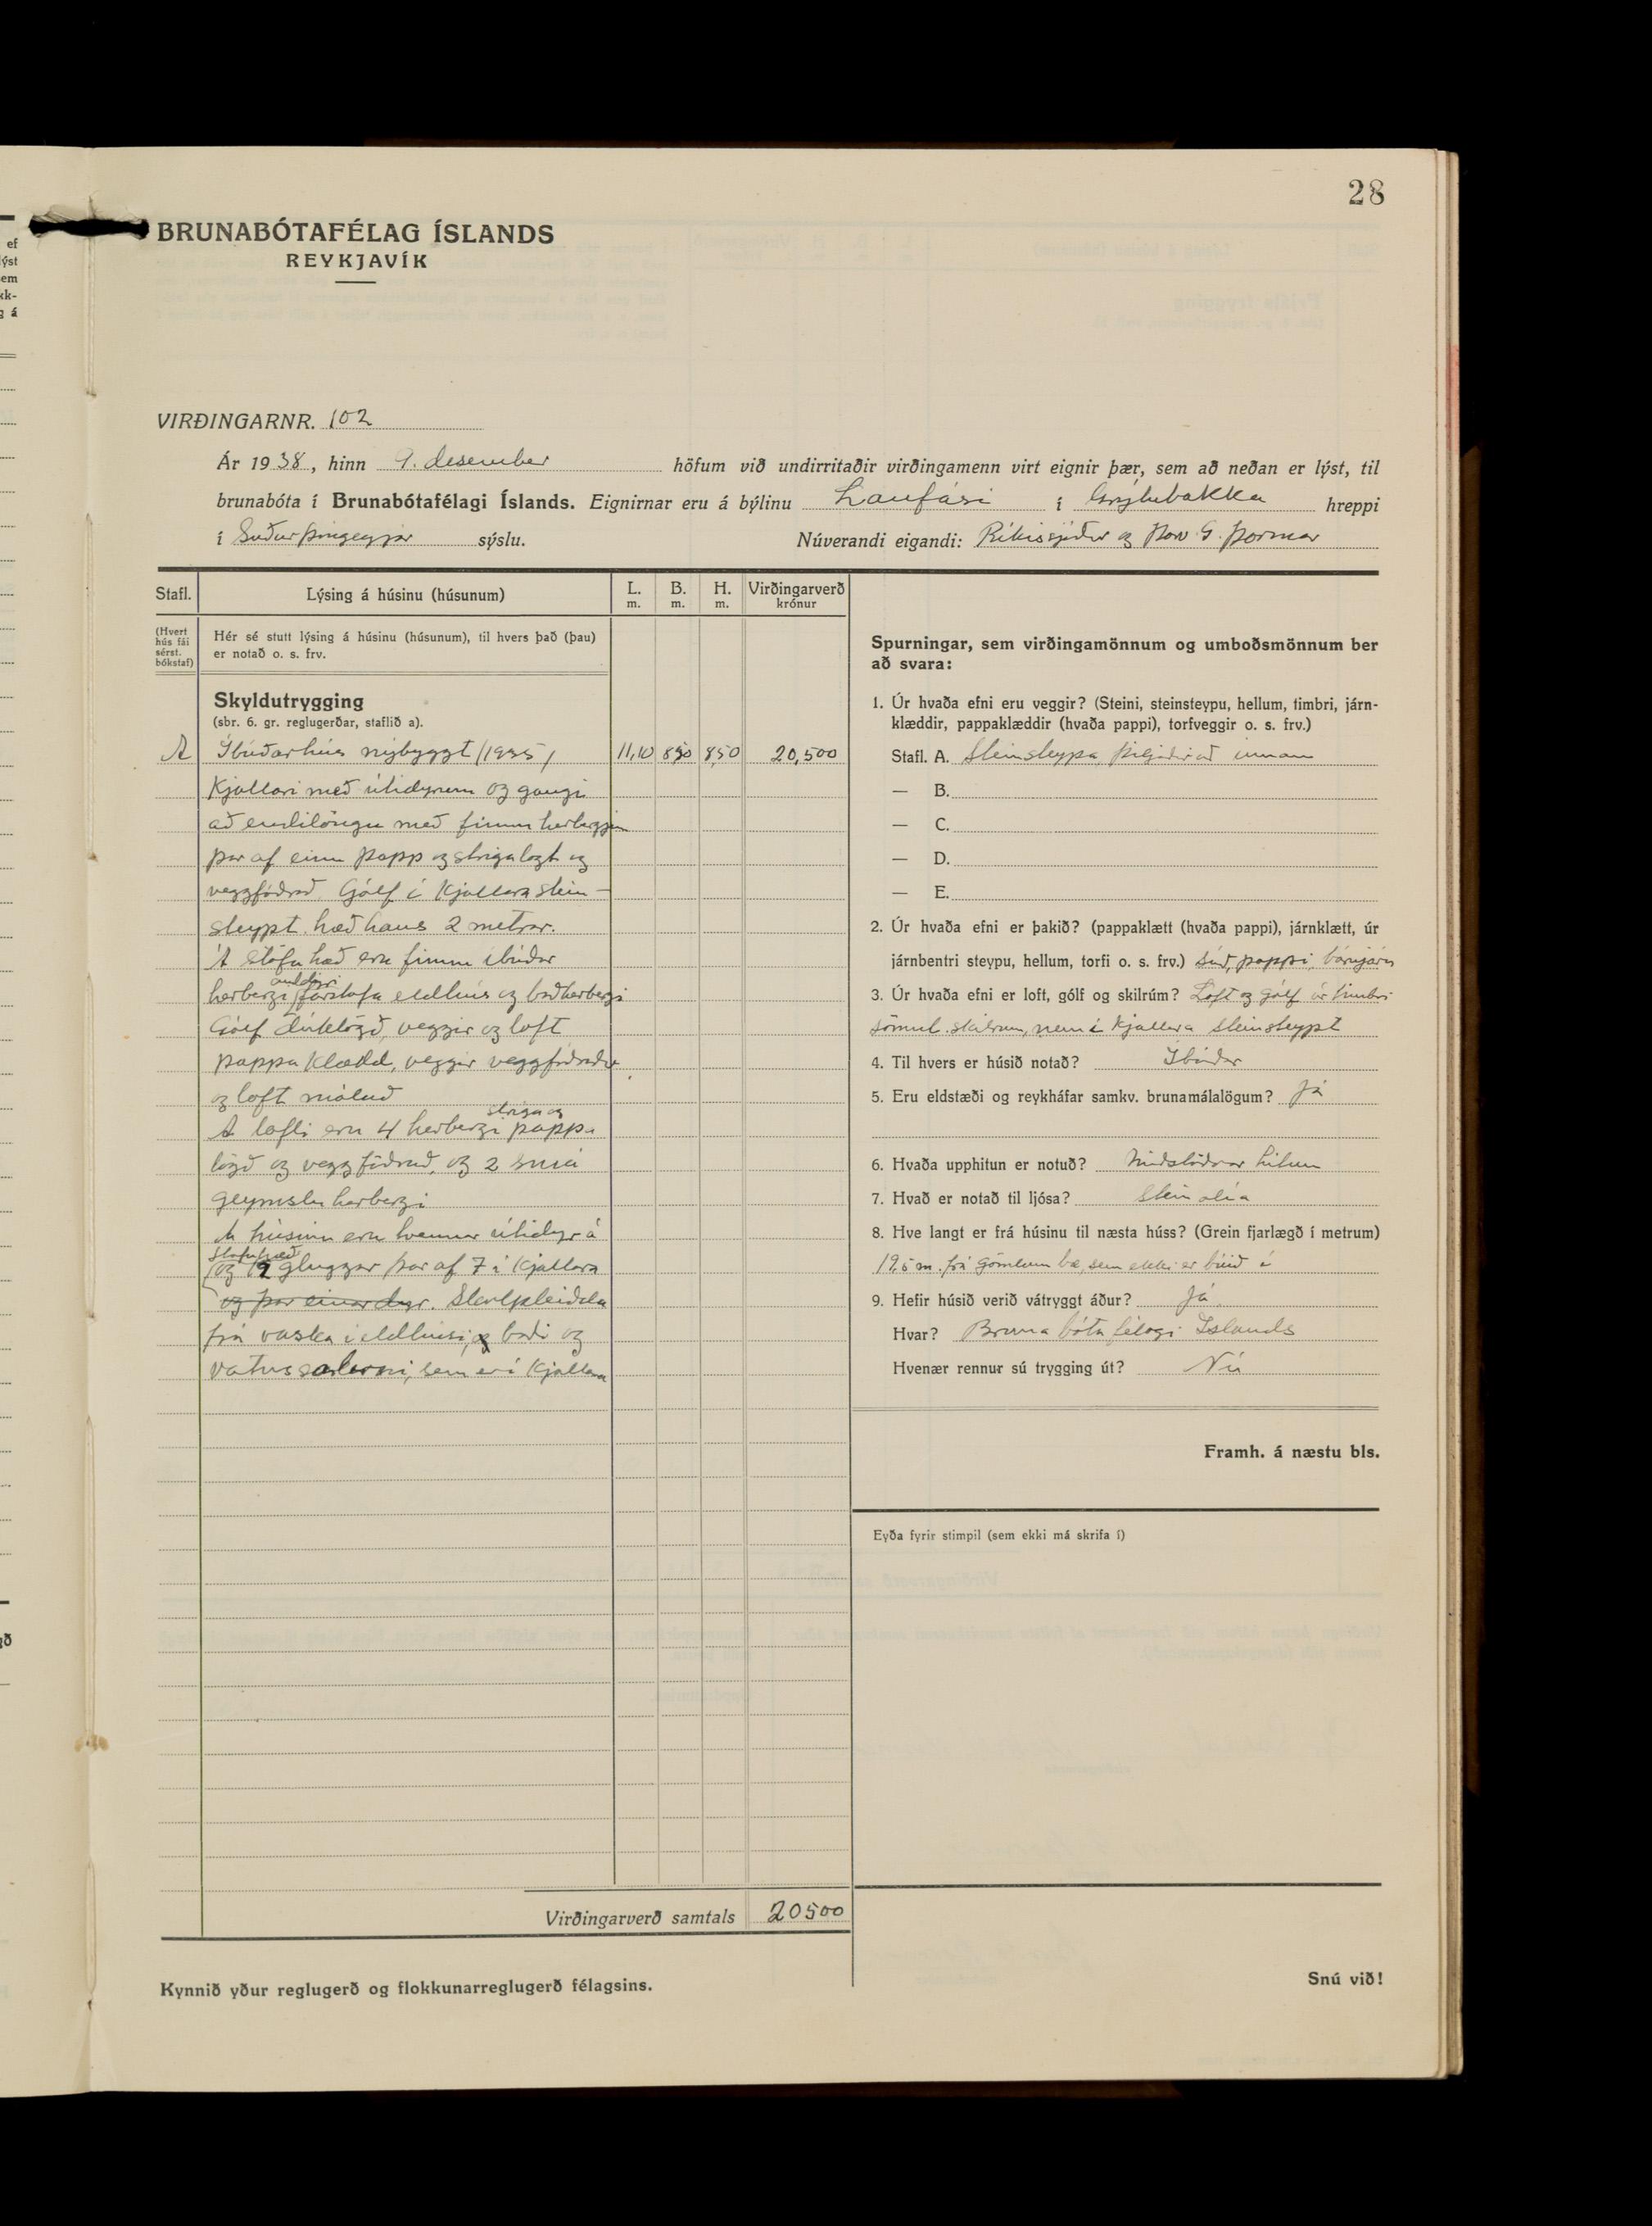 28
BRUNABÓTAFÉLAG ÍSLANDS
REYKJAVÍK
VIRÐINGARNR. 102
Ár 1938, hinn 9. desember höfum við undirritaðir virðingamenn virt eignir þær, sem að neðan er lýst, til
brunabóta í Brunabótafélagi Íslands. Eignirnar eru á býlinu Laufási í Grýtubakka hreppi
í Suðurþingeyjar sýslu. Núverandi eigandi: Ríkissjóður og Þorv. G. Þormar
Stafl. Lýsing á húsinu (húsunum) L. m. B. m. H. m. Virðingarverð krónur
(Hvert hús fái sérst. bókstaf)
Hér sé stutt lýsing á húsinu (húsunum), til hvers það (þau)
er notað o. s. frv.
Skyldutrygging
(sbr. 6. gr. reglugerðar, staflið a).
A Íbúðarhús nýbyggt (1935) 11,10 8,50 8,50 20,500
Kjallari með útidyrum og gangi
að endilöngu með fimm herbergjum
þar af einu papp og strigalagt og
veggfóðrað. Gólf í Kjallara stein-
steypt. hæð hans 2 metrar.
Á stofu hæð eru fimm íbúðar
herbergi, anddyri forstofa eldhús og baðherbergi
Gólf dúklögð, veggir og loft
pappa klædd, veggir veggfóðraðir
og loft máluð
Á lofti eru 4 herbergi striga og pappa
lögð og veggfóðruð, og 2 smá
geymslu herbergi
Á húsinu eru tvennar útidyr á
stofuhæð
og 19 gluggar þar af 7 í Kjallara
og þar einar dyr. Skolpleiðsla
frá vaska í eldhúsi, og baði og
vatnssalerni, sem er í Kjallara
Virðingarverð samtals 20500
Spurningar, sem virðingamönnum og umboðsmönnum ber
að svara:
1. Úr hvaða efni eru veggir? (Steini, steinsteypu, hellum, timbri, járn-
klæddir, pappaklæddir (hvaða pappi), torfveggir o. s. frv.)
Stafl. A. Steinsteypa, þiljað innan
— B.
— C.
— D.
— E.
2. Úr hvaða efni er þakið? (pappaklætt (hvaða pappi), járnklætt, úr
járnbentri steypu, hellum, torfi o. s. frv.) Súð, pappi, bárujárn
3. Úr hvaða efni er loft, gólf og skilrúm? Loft og gólf úr timbri
sömul. skilrúm, nema í Kjallara steinsteypt
4. Til hvers er húsið notað? Íbúðar
5. Eru eldstæði og reykháfar samkv. brunamálalögum? Já
6. Hvaða upphitun er notuð? Miðstöðvar hitun
7. Hvað er notað til ljósa? Steinolía
8. Hve langt er frá húsinu til næsta húss? (Grein fjarlægð í metrum)
19.5 m. frá gömlum bæ, sem ekki er búið í
9. Hefir húsið verið vátryggt áður? Já
Hvar? Brunabótafélagi Íslands
Hvenær rennur sú trygging út? Nú
Framh. á næstu bls.
Eyða fyrir stimpil (sem ekki má skrifa í)
Kynnið yður reglugerð og flokkunarreglugerð félagsins.
Snú við!